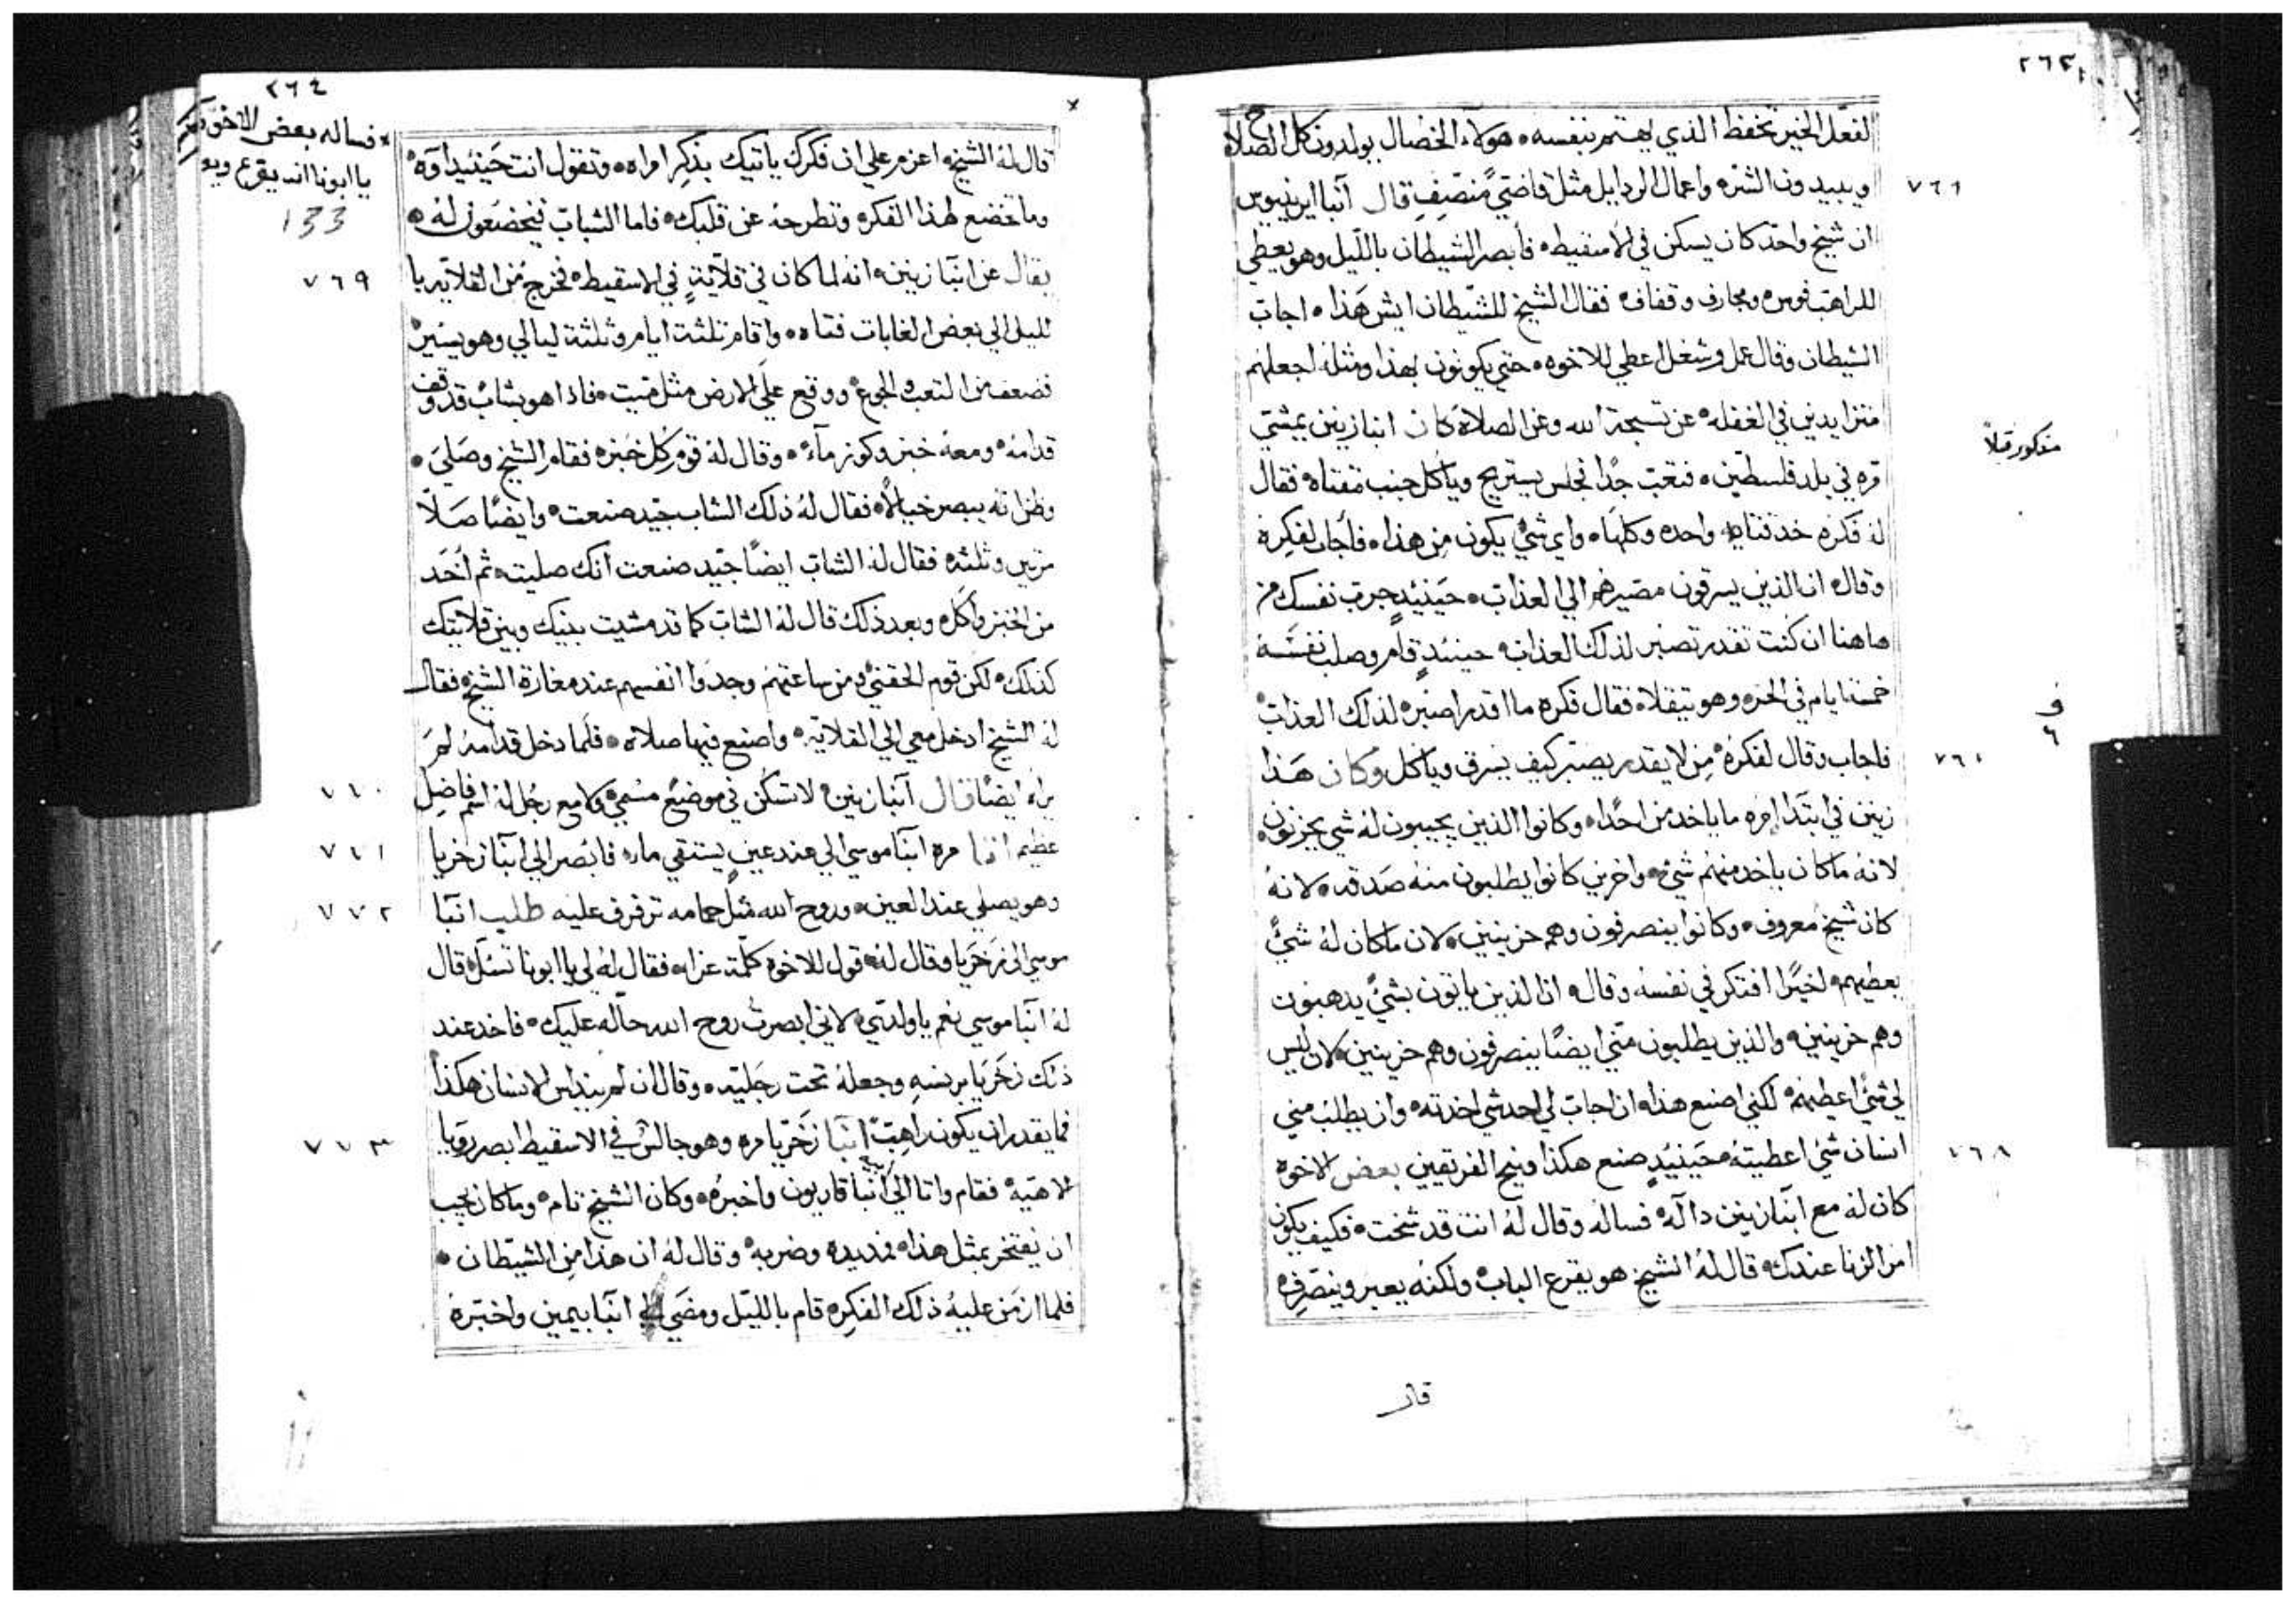 ٢٦٣
لفعل الخير تحفظ الذي يهتم بنفسه هولاء الخصال يولدون كل الصلاح
ويبيدون الشره واعمال الردايل مثل قاضي منصف قال آنبا ايرينيوس
٧٦٦
ان شيخ واحد كان يسكن في الاسقيطه فأبصر الشيطان بالليل وهو يعطي
للراهب فوس ومجارف وقفاف فقال الشيخ للشيطان ايش هذا اجاب
الشيطان وقال عمل وشغل اعطي للاخوه حتي يكونون بهذا ومثله اجعلهم
متزايدين في الغفله عن تسبحة الله وعن الصلاة كان انبا زينن يمشي
مذكور قبلاً
مره في بلد فلسطين فتعب جدًا فجلس يستريح وياكل جنب مقتاه فقال
له فكره خد قتايه واحده وكلها واي شي يكون من هذا فأجاب لفكره
وقال ان الذين يسرقون مصيرهم الي العذاب حينيد جرب نفسك من
هاهنا ان كنت تقدر تصبر لذلك العذاب حينيدٍ قام وصلب نفسه
خمسة ايام في الحر وهو يتقلا فقال فكره ما اقدر اصبر لذلك العذاب
فاجاب وقال لفكره من لا يقدر يصبر كيف يسرق وياكل وكان هذا
زينن في ابتدا امره ما ياخد من احدًا وكانوا الذين يجيبون له شي يحزنون
لانه ما كان ياخد منهم شي واخرين كانوا يطلبون منه صدقه لانه
كان شيخ معروف وكانوا ينصرفون وهم حزينين لان ما كان له شي
يعطيهم اخيرًا افتكر في نفسه وقال ان الذين ياتون بشي يدهبون
وهم حزينين والذين يطلبون مني ايضًا ينصرفون وهم حزينين لان ليس
لي شي اعطيهم لكني اصنع هذا ان اجاب لي احد شي اخدته وان يطلب مني
انسان شي اعطيته فحينيدٍ صنع هكذا فنيح الفريقين بعض الاخوه
٧٦٨
كان له مع آنبا زينن دالة فساله وقال له انت قد شخت فكيف يكون
امر الزنا عندك قال له الشيخ هو يقرع الباب ولكنه يعبر وينصرف
قال
٢٦٤
فساله بعض الاخوه
يا ابونا انه يقرع
133
قال له الشيخ اعزم علي ان فكرك ياتيك بذكر امراه وتقول انت حينيد اوه
وما تخضع لهذا الفكره وتطرحه عن قلبك فاما الشباب فيخضعون له
يقال عن انبا زينن انه لما كان في قلاية في الاسقيطه فخرج من القلايه با
٧٦٩
لليل الي بعض الغابات فتاه واقام تلثة ايام وتلثة ليالي وهو يسير
فضعف من التعب والجوع ووقع علي الارض مثل ميت فاذا هو بشاب قد وقف
قدامه ومعه خبز وكوز مآء وقال له قوم كل خبزه فقام الشيخ وصلي
وظن انه يبصر خيالًا فقال له ذلك الشاب جيد صنعت وايضًا صلا
مرتين وتلثه فقال له الشاب ايضًا جيد صنعت انك صليت ثم اخد
من الخبز وأكل وبعد ذلك قال له الشاب كما قد مشيت بينك وبين قلايتك
كذلك لكن قوم الحقني ومن ساعتهم وجدوا انفسهم عند مغارة الشيخ فقال
له الشيخ ادخل معي الي القلايه واصنع فيها صلاه فلما دخل قدامه لم
يراه ايضًا قال آنبا زينن لا تسكن في موضع مسمي ولا مع رجل له اسم فاضل
عظيم اتا مره انبا موسي الي عند عين يستقي ماء فابصر الي انبا زخريا
وهو يصلي عند العين وروح الله مثل حمامه ترفرف عليه طلب انبا
٧٧٢
موسي الي زخريا وقال له قول للاخوه كلمة عزا فقال له لي يا ابونا تسل قال
له انبا موسي نعم يا ولدي لاني ابصرت روح الله حاله عليك فاخد عند
ذلك زخريا برنسه وجعله تحت رجليه وقال ان لم يندلس الانسان هكذا
فما يقدر ان يكون راهب انبا زخريا مره وهو جالس في الاسقيط ابصر رويا
٧٧٣
الاهيه فقام واتا الي انبا قاريون واخبره وكان الشيخ تام وما كان يحب
ان يفتخر بمثل هذا فمد يده وضربه وقال له ان هذا من الشيطان
فلما ازمن عليه ذلك الفكره قام بالليل ومضي الي انبا بيمين واخبره